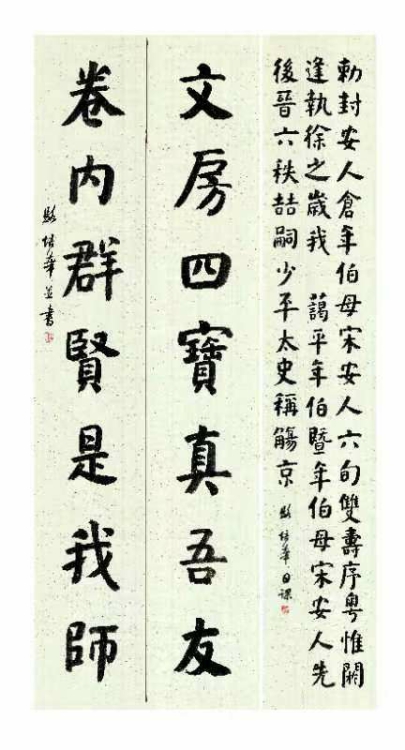 勅封安人倉年伯母宋安人六旬雙壽序粤惟閼
逢執徐之歲我 藹平年伯暨年伯母宋安人先
後晉六秩喆嗣少平太史稱觴京
駱培華日課
文房四寶真吾友
卷內群賢是我師
駱培華並書